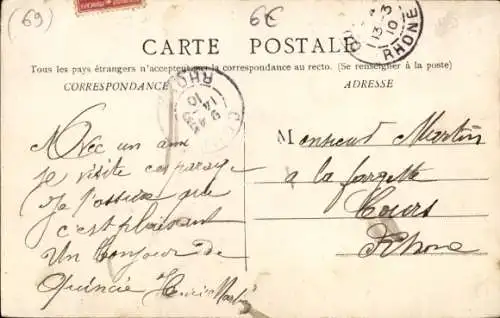 (69)
6€
13-3
10
RHONE
CARTE POSTALE
Tous les pays étrangers n'acceptent pas la correspondance au recto. (Se renseigner à la poste)
CORRESPONDANCE
ADRESSE
RHONE
9 45
14-3
10
Avec un ami
je visite ces parages
Je t'assure que
c'est plaisant
Un bonjour de
Quincié
Martin
Monsieur Martin
a la fargette
Cours
Rhone